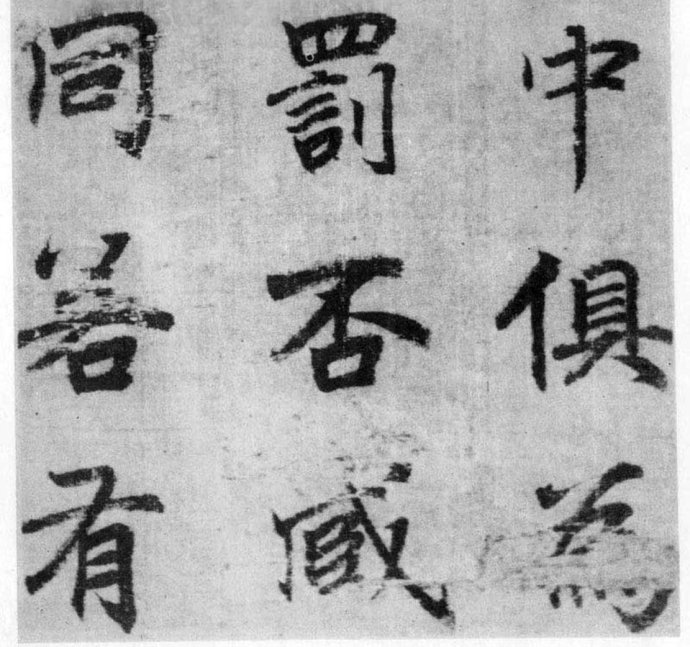 中俱為
罰否臧
同若有